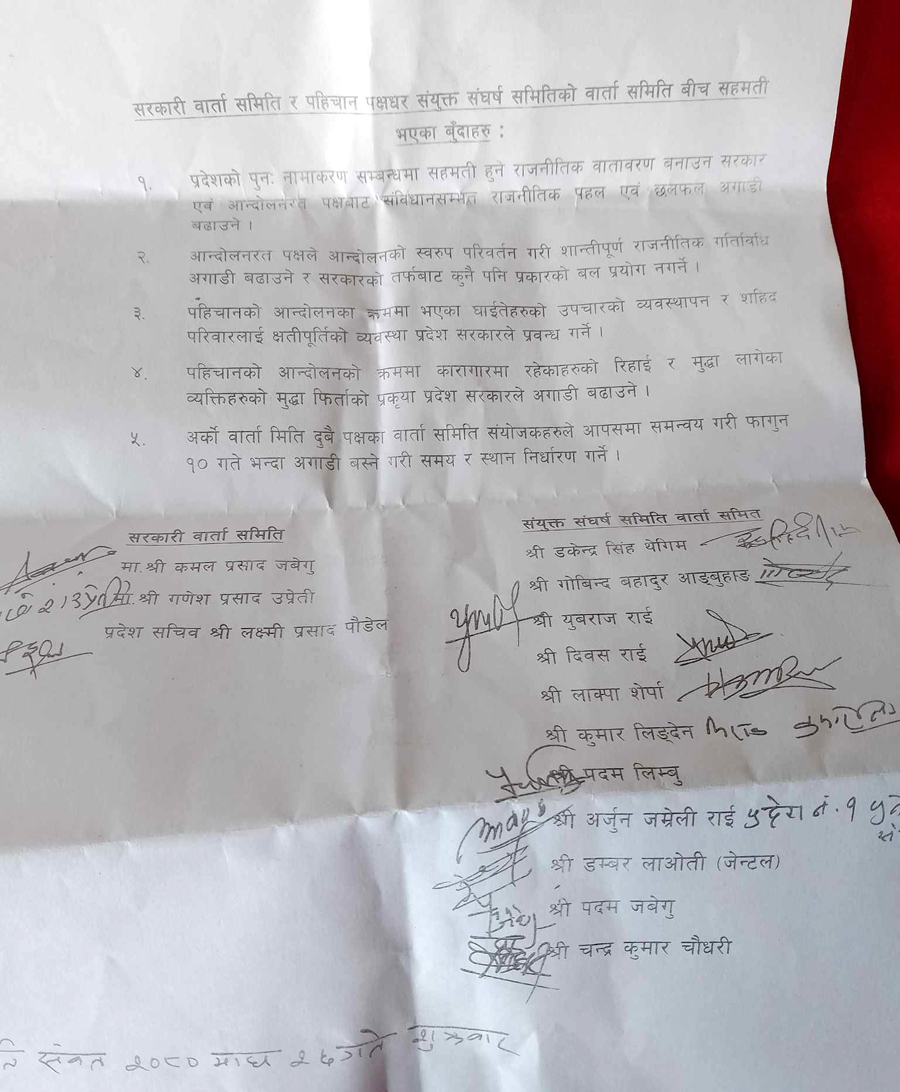 सरकारी वार्ता समिति र पहिचान पक्षधर संयुक्त संघर्ष समितिको वार्ता समिति बीच सहमती
भएका बुँदाहरु :
१. प्रदेशको पुनः नामाकरण सम्बन्धमा सहमती हुने राजनीतिक वातावरण बनाउन सरकार
एवं आन्दोलनरत पक्षबाट संविधानसम्मत राजनीतिक पहल एवं छलफल अगाडी
बढाउने ।
२. आन्दोलनरत पक्षले आन्दोलनको स्वरुप परिवर्तन गरी शान्तीपूर्ण राजनीतिक गतिविधि
अगाडी बढाउने र सरकारको तर्फबाट कुनै पनि प्रकारको बल प्रयोग नगर्ने ।
३. पहिचानको आन्दोलनका क्रममा भएका घाईतेहरुको उपचारको व्यवस्थापन र शहिद
परिवारलाई क्षतीपूर्तिको व्यवस्था प्रदेश सरकारले प्रवन्ध गर्ने ।
४. पहिचानको आन्दोलनको क्रममा कारागारमा रहेकाहरुको रिहाई र मुद्धा लागेका
व्यक्तिहरुको मुद्धा फिर्ताको प्रकृया प्रदेश सरकारले अगाडी बढाउने ।
५. अर्को वार्ता मिति दुबै पक्षका वार्ता समिति संयोजकहरुले आपसमा समन्वय गरी फागुन
१० गते भन्दा अगाडी बस्ने गरी समय र स्थान निर्धारण गर्ने ।
सरकारी वार्ता समिति
मा.श्री कमल प्रसाद जबेगु
मा.श्री गणेश प्रसाद उप्रेती
प्रदेश सचिव श्री लक्ष्मी प्रसाद पौडेल
संयुक्त संघर्ष समिति वार्ता समित
श्री डकेन्द्र सिंह थेगिम
श्री गोबिन्द बहादुर आङ्बुहाङ
श्री युबराज राई
श्री दिवस राई
श्री लाक्पा शेर्पा
श्री कुमार लिङ्देन
श्री पदम लिम्बु
श्री अर्जुन जम्रेली राई प्रदेश नं. १
श्री डम्बर लाओती (जेन्टल)
श्री पदम जबेगु
श्री चन्द्र कुमार चौधरी
संवत २०८० माघ २६ गते शुक्रवार